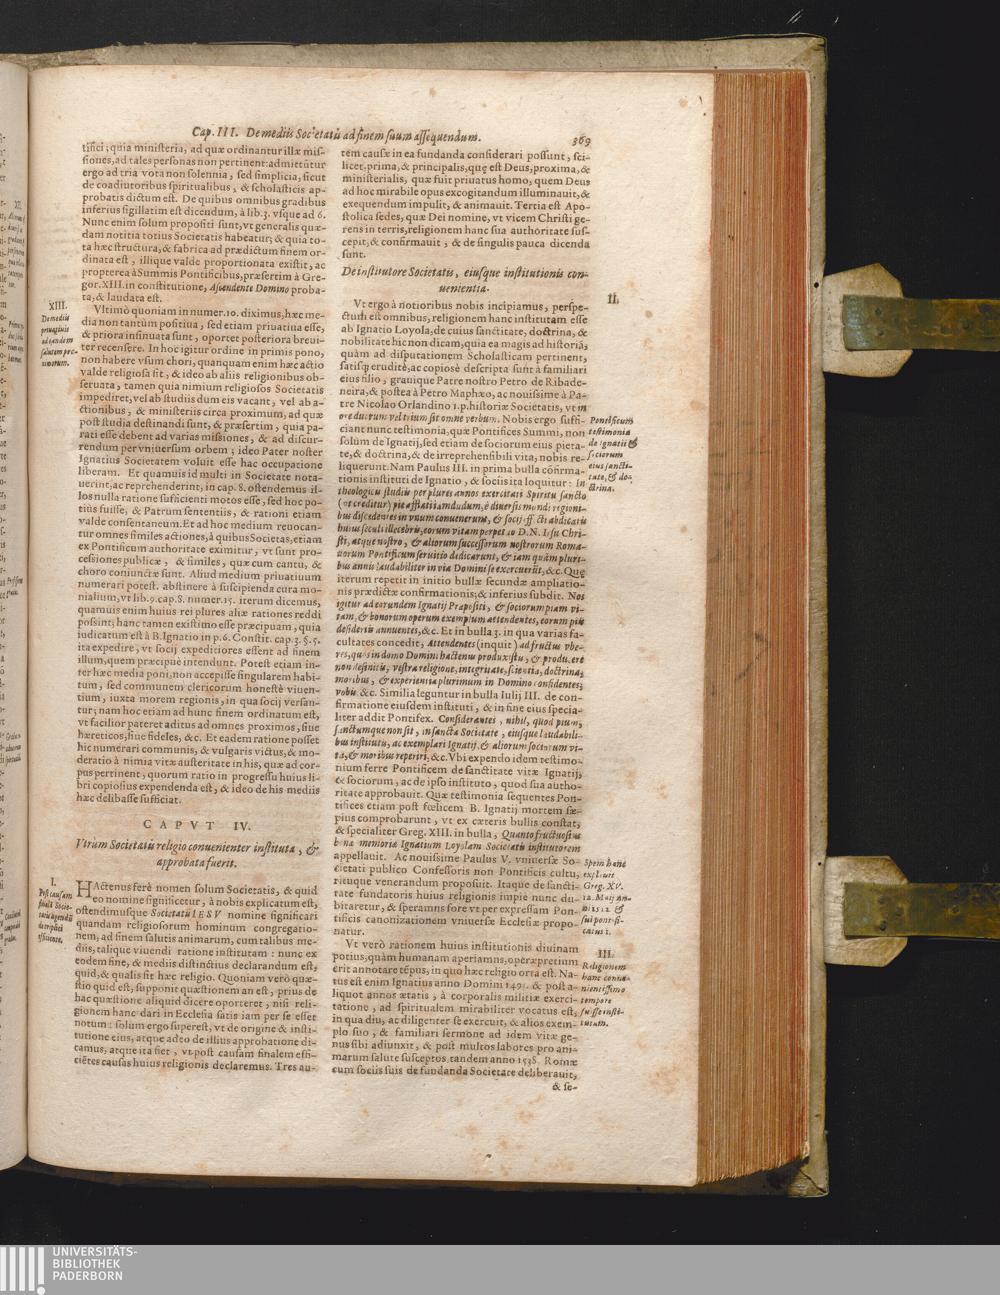 Cap. III. De mediis Societatis ad finem suum assequendum. 369
tifici; quia ministeria, ad quæ ordinantur illæ mis-
siones, ad tales personas non pertinent: admittūtur
ergo ad tria vota non solennia, sed simplicia, sicut
de coadiutoribus spiritualibus, & scholasticis ap-
probatis dictum est. De quibus omnibus gradibus
inferius sigillatim est dicendum, à lib. 3. vsque ad 6.
Nunc enim solum propositi sunt, vt generalis quæ-
dam notitia totius Societatis habeatur; & quia to-
ta hæc structura, & fabrica ad prædictum finem or-
dinata est, illique valde proportionata existit, ac
propterea à Summis Pontificibus, præsertim à Gre-
gor. XIII. in constitutione, Ascendente Domino proba-
ta, & laudata est.
XIII.
De mediis
priuatiuis
ad eandem
salutem pro-
ximorum.
Vltimò quoniam in numer. 10. diximus, hæc me-
dia non tantùm positiua, sed etiam priuatiua esse,
& priora insinuata sunt, oportet posteriora breui-
ter recensere. In hoc igitur ordine in primis pono,
non habere vsum chori, quanquam enim hæc actio
valde religiosa sit, & ideo ab aliis religionibus ob-
seruata, tamen quia nimium religiosos Societatis
impediret, vel ab studiis dum eis vacant, vel ab a-
ctionibus, & ministeriis circa proximum, ad quæ
post studia destinandi sunt, & præsertim, quia pa-
rati esse debent ad varias missiones, & ad discur-
rendum per vniuersum orbem; ideo Pater noster
Ignatius Societatem voluit esse hac occupatione
liberam. Et quamuis id multi in Societate nota-
uerint, ac reprehenderint, in cap. 8. ostendemus il-
los nulla ratione sufficienti motos esse, sed hoc po-
tiùs fuisse, & Patrum sententiis, & rationi etiam
valde consentaneum. Et ad hoc medium reuocan-
tur omnes similes actiones, à quibus Societas, etiam
ex Pontificum authoritate eximitur, vt sunt pro-
cessiones publicæ, & similes, quæ cum cantu, &
choro coniunctæ sunt. Aliud medium priuatiuum
numerari potest, abstinere à suscipienda cura mo-
nialium, vt lib. 9. cap. 8. numer. 15. iterum dicemus,
quamuis enim huius rei plures aliæ rationes reddi
possint, hanc tamen existimo esse præcipuam, quia
iudicatum est à B. Ignatio in p. 6. Constit. cap. 3. §. 5.
ita expedire, vt socij expeditiores essent ad finem
illum, quem præcipuè intendunt. Potest etiam in-
ter hæc media poni, non accepisse singularem habi-
tum, sed communem clericorum honestè viuen-
tium, iuxta morem regionis, in qua socij versan-
tur; nam hoc etiam ad hunc finem ordinatum est,
vt facilior pateret aditus ad omnes proximos, siue
hæreticos, siue fideles, &c. Et eadem ratione posset
hic numerari communis, & vulgaris victus, & mo-
deratio à nimia vitæ austeritate in his, quæ ad cor-
pus pertinent, quorum ratio in progressu huius li-
bri copiosius expendenda est, & ideo de his mediis
hæc delibasse sufficiat.
CAPVT IV.
Vtrùm Societatis religio conuenienter instituta, &
approbata fuerit.
I.
HActenus ferè nomen solum Societatis, & quid
eo nomine significetur, à nobis explicatum est,
ostendimusque Societatis IESV nomine significari
quandam religiosorum hominum congregatio-
nem, ad finem salutis animarum, cum talibus me-
diis, talique viuendi ratione institutam: nunc ex
eodem fine, & mediis distinctius declarandum est,
quid, & qualis sit hæc religio. Quoniam verò quæ-
stio quid est, supponit quæstionem an est, prius de
hac quæstione aliquid dicere oporteret, nisi reli-
gionem hanc dari in Ecclesia satis iam per se esset
notum: solum ergo superest, vt de origine & insti-
tutione eius, atque adeo de illius approbatione di-
camus, atque ita fiet, vt post causam finalem effi-
ciētes causas huius religionis declaremus. Tres au-
tem causæ in ea fundanda considerari possunt, sci-
licet, prima, & principalis, quę est Deus, proxima, &
ministerialis, quæ fuit priuatus homo, quem Deus
ad hoc mirabile opus excogitandum illuminauit, &
exequendum impulit, & animauit. Tertia est Apo-
stolica sedes, quæ Dei nomine, vt vicem Christi ge-
rens in terris, religionem hanc sua authoritate sus-
cepit, & confirmauit, & de singulis pauca dicenda
sunt.
De institutore Societatis, eiusque institutionis con-
uenientia.
II.
Vt ergo à notioribus nobis incipiamus, perspe-
ctum est omnibus, religionem hanc institutam esse
ab Ignatio Loyola, de cuius sanctitate, doctrina, &
nobilitate hic non dicam, quia ea magis ad historiā,
quàm ad disputationem Scholasticam pertinent,
satisq; eruditè, ac copiosè descripta sunt à familiari
eius filio, grauique Patre nostro Petro de Ribade-
neira, & postea à Petro Maphæo, ac nouissime à Pa-
tre Nicolao Orlandino 1. p. historiæ Societatis, vt in
ore duorum vel trium sit omne verbum. Nobis ergo suffi-
ciant nunc testimonia, quæ Pontifices Summi, non
solùm de Ignatij, sed etiam de sociorum eius pieta-
te, & doctrina, & de irreprehensibili vita, nobis re-
liquerunt. Nam Paulus III. in prima bulla cōfirma-
tionis instituti de Ignatio, & sociis ita loquitur: In
Pontificum
testimonia
de Ignatii &
sociorum
eius sancti-
tate, & do-
ctrina.
theologicis studiis per plures annos exercitati Spiritu sancto
(vt creditur) pie afflati iamdudum, è diuersis mundi regioni-
bus discedentes in vnum conuenerunt, & socij effecti abdicatis
huius seculi illecebris, eorum vitam perpetuo D. N. Iesu Chri-
sti, atque nostro, & aliorum successorum nostrorum Roma-
norum Pontificum seruitio dedicarunt, & iam quàm pluri-
bus annis laudabiliter in via Domini se exercuerūt, &c. Quę
iterum repetit in initio bullæ secundæ ampliatio-
nis prædictæ confirmationis; & inferius subdit. Nos
igitur ad eorundem Ignatij Præpositi, & sociorum piam vi-
tam, & bonorum operum exemplum attendentes, eorum piis
desideriis annuentes, &c. Et in bulla 3. in qua varias fa-
cultates concedit, Attendentes (inquit) ad fructus vbe-
res, quos in domo Domini hactenus produxistis, & producere
non desinitis, vestra religione, integritate, scientia, doctrina,
moribus, & experientia plurimum in Domino confidentes,
vobis &c. Similia leguntur in bulla Iulij III. de con-
firmatione eiusdem instituti, & in fine eius specia-
liter addit Pontifex. Considerantes, nihil, quod pium,
sanctumque non sit, in sancta Societate, eiusque laudabili-
bus institutis, ac exemplari Ignatij & aliorum sociorum vi-
ta, & moribus reperiri, &c. Vbi expendo idem testimo-
nium ferre Pontificem de sanctitate vitæ Ignatij,
& sociorum, ac de ipso instituto, quod sua autho-
ritate approbauit. Quæ testimonia sequentes Pon-
tifices etiam post fœlicem B. Ignatij mortem sæ-
pius comprobarunt, vt ex cæteris bullis constat,
& specialiter Greg. XIII. in bulla, Quanto fructuosius
bonæ memoriæ Ignatium Loyolam Societatis institutorem
appellauit. Ac nouissime Paulus V. vniuersæ So-
cietati publico Confessoris non Pontificis cultu,
rituque venerandum proposuit. Itaque de sancti-
tate fundatoris huius religionis impie nunc du-
bitaretur, & speramus fore vt per expressam Pon-
tificis canonizationem vniuersæ Ecclesiæ propo-
natur.
Spem hanc
expleuit
Greg. XV.
III.
Religionem
hanc conue-
nientissimo
tempore
fuisse insti-
tutam.
Vt verò rationem huius institutionis diuinam
potius, quàm humanam aperiamus, operæpretium
erit annotare tēpus, in quo hæc religio orta est. Na-
tus est enim Ignatius anno Domini 1491. & post a-
liquot annos ætatis, à corporalis militiæ exerci-
tatione, ad spiritualem mirabiliter vocatus est,
in qua diu, ac diligenter se exercuit, & alios exem-
plo suo, & familiari sermone ad idem vitæ ge-
nus sibi adiunxit, & post multos labores pro ani-
marum salute susceptos, tandem anno 1538. Romæ
cum sociis suis de fundanda Societate deliberauit,
& se-
UNIVERSITÄTS-
BIBLIOTHEK
PADERBORN